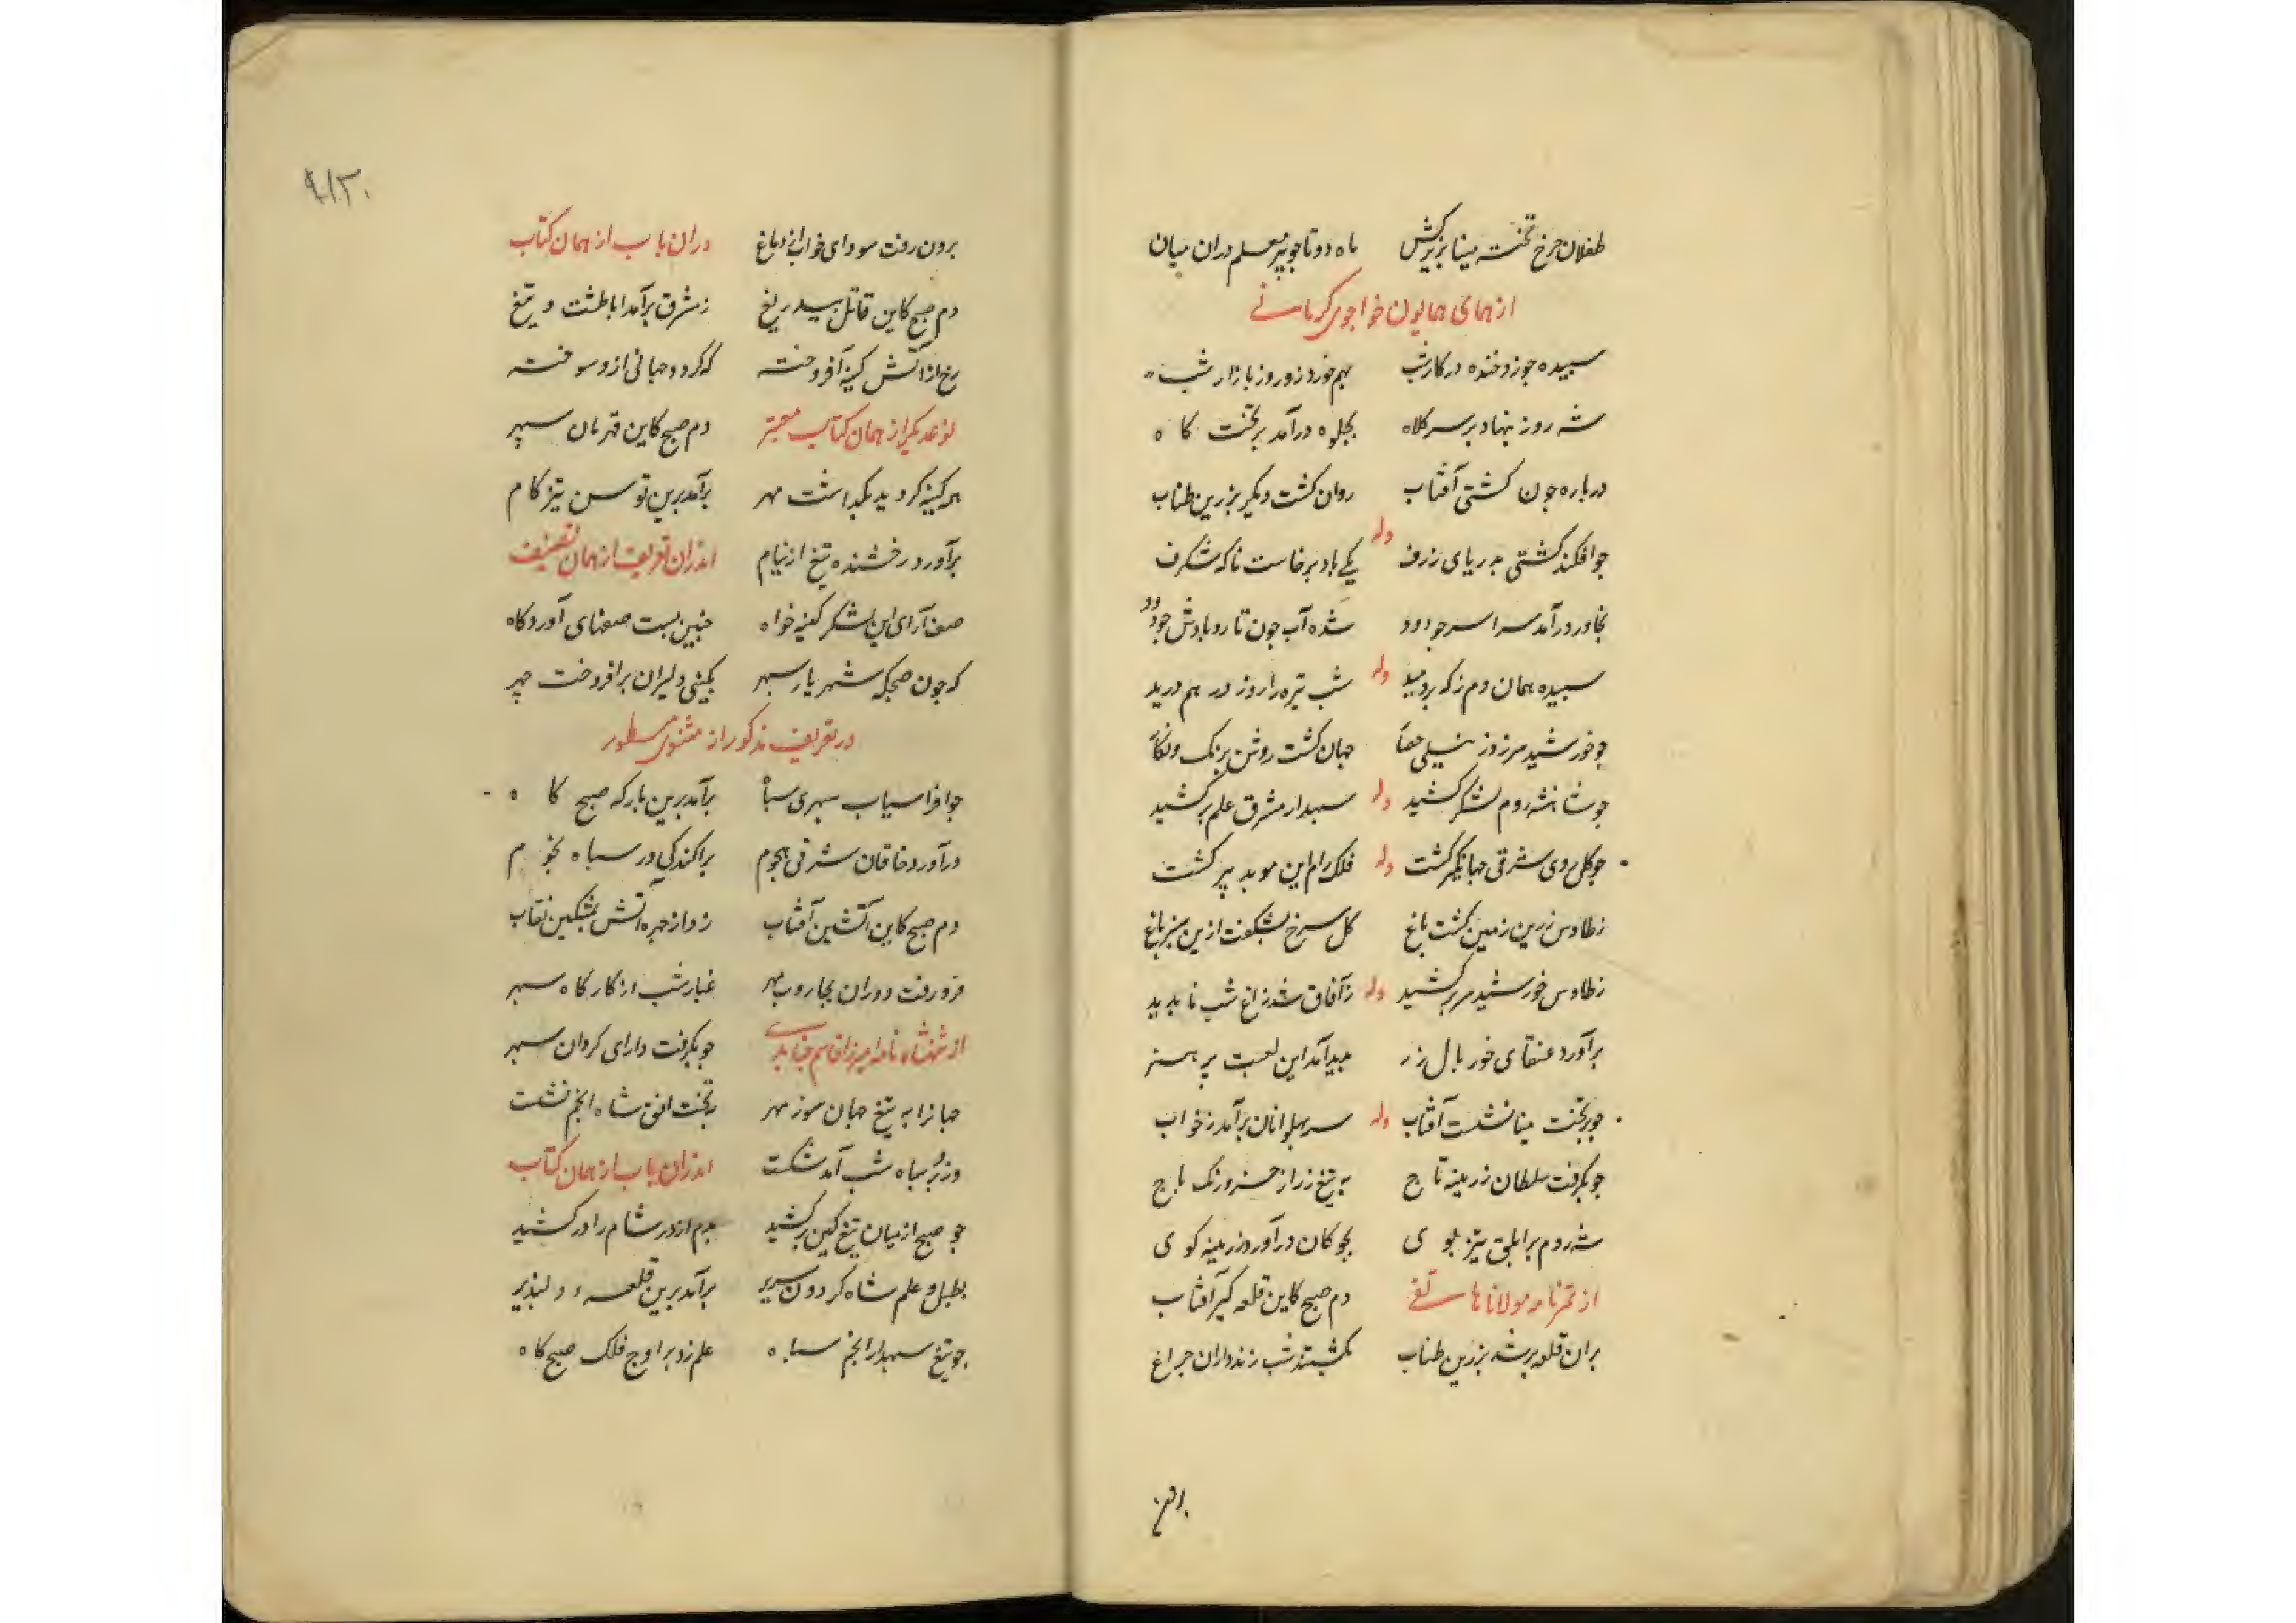 طفلان چرخ تخته مینا بزیر کش ماه دوتا چو پیر معلم دران میان
از همای همایون خواجوی کرمانے
سپیده چو زد خنده در کار شب بهم خورد زو روز بازار شب
شه روز بنهاد بر سر کلاه بجلوه درآمد بر تخت کاه
درباره چون کشتی آفتاب روان کشت دیکر بزرین طناب
چو افکند کشتی بدریای ژرف وله یکے باد برخاست ناکه شکرف
بخاور درآمد سراسر چو دود شده آب چون تار و بادش چو پود
سپیده همان دم ز که بردمید وله شب تیره را روز در هم درید
چو خورشید سر زد ز نیلی حصار جهان کشت روشن برنک و نکار
چو شاهنشه روم لشکر کشید وله سپهدار مشرق علم برکشید
چو کل روی شرقی جهانکیر کشت وله فلک رام این موبد پیر کشت
ز طاوس زرین زمین کشت باغ کل سرخ بشکفت ازین سبز باغ
ز طاوس خورشید سر برکشید وله ز آفاق شد زاغ شب ناپدید
برآورد عنقای خور بال زر پدید آمد این لعبت پر هنر
چو بر تخت مینا نشست آفتاب وله سر پهلوانان برآمد ز خواب
چو بکرفت سلطان زرینه تاج به تیغ زر از خسرو زنک باج
شه روم بر ابلق تیز پوی بچوکان درآورد زرینه کوی
از تمرنامه مولانا هاتفے دم صبح کاین قلعه کیر آفتاب
بران قلعه بر شد بزرین طناب بکشتند شب زنده داران چراغ
برون
۹۱۳
برون رفت سودای خواب از دماغ دران باب از همان کتاب
دم صبح کاین قاتل بیدریغ ز مشرق برآمد با طشت و تیغ
رخ از آتش کینه افروخته که کردد جهانی ازو سوخته
نوعدیکر از همان کتاب معتبر دم صبح کاین قهرمان سپهر
همه کینه کردید بکذاشت مهر برآمد برین توسن تیز کام
برآورد رخشنده تیغ از نیام اندران تعریف از همان تصنیف
صف آرای این لشکر کینه خواه چنین بست صفهای آوردکاه
که چون صبحکه شهریار سپهر بکین دلیران برافروخت چهر
در تعریف مذکور از مثنوی مسطور
چو افراسیاب سپهری سپاه برآمد برین بارکه صبح کاه
درآورد خاقان شرقی هجوم پراکندکی در سپاه نجوم
دم صبح کاین آتشین آفتاب زد از چهره آتش بمشکین نقاب
فرو رفت دوران بجاروب مهر غبار شب از کارکاه سپهر
از شهنشاه نامه میرزا قاسم جنابدی چو بکرفت دارای کردان سپهر
جهانرا به تیغ جهان سوز مهر بر تخت افق شاه انجم نشست
وزو بر سپاه شب آمد شکست اندران باب از همان کتاب
چو صبح از میان تیغ کین برکشید بدم اژدر شام را درکشید
بطبل و علم شاه کردون سریر برآمد برین قلعه دلپذیر
چو تیغ سپهدار انجم سپاه علم زد بر اوج فلک صبح کاه